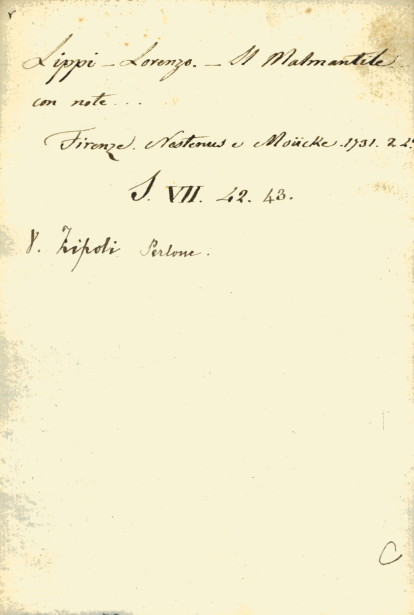 Lippi - Lorenzo. - Il Malmantile
con note...
Firenze. Nestenus e Moücke. 1731. 2 4°
S. VII. 42. 43.
V. Zipoli Perlone.
C